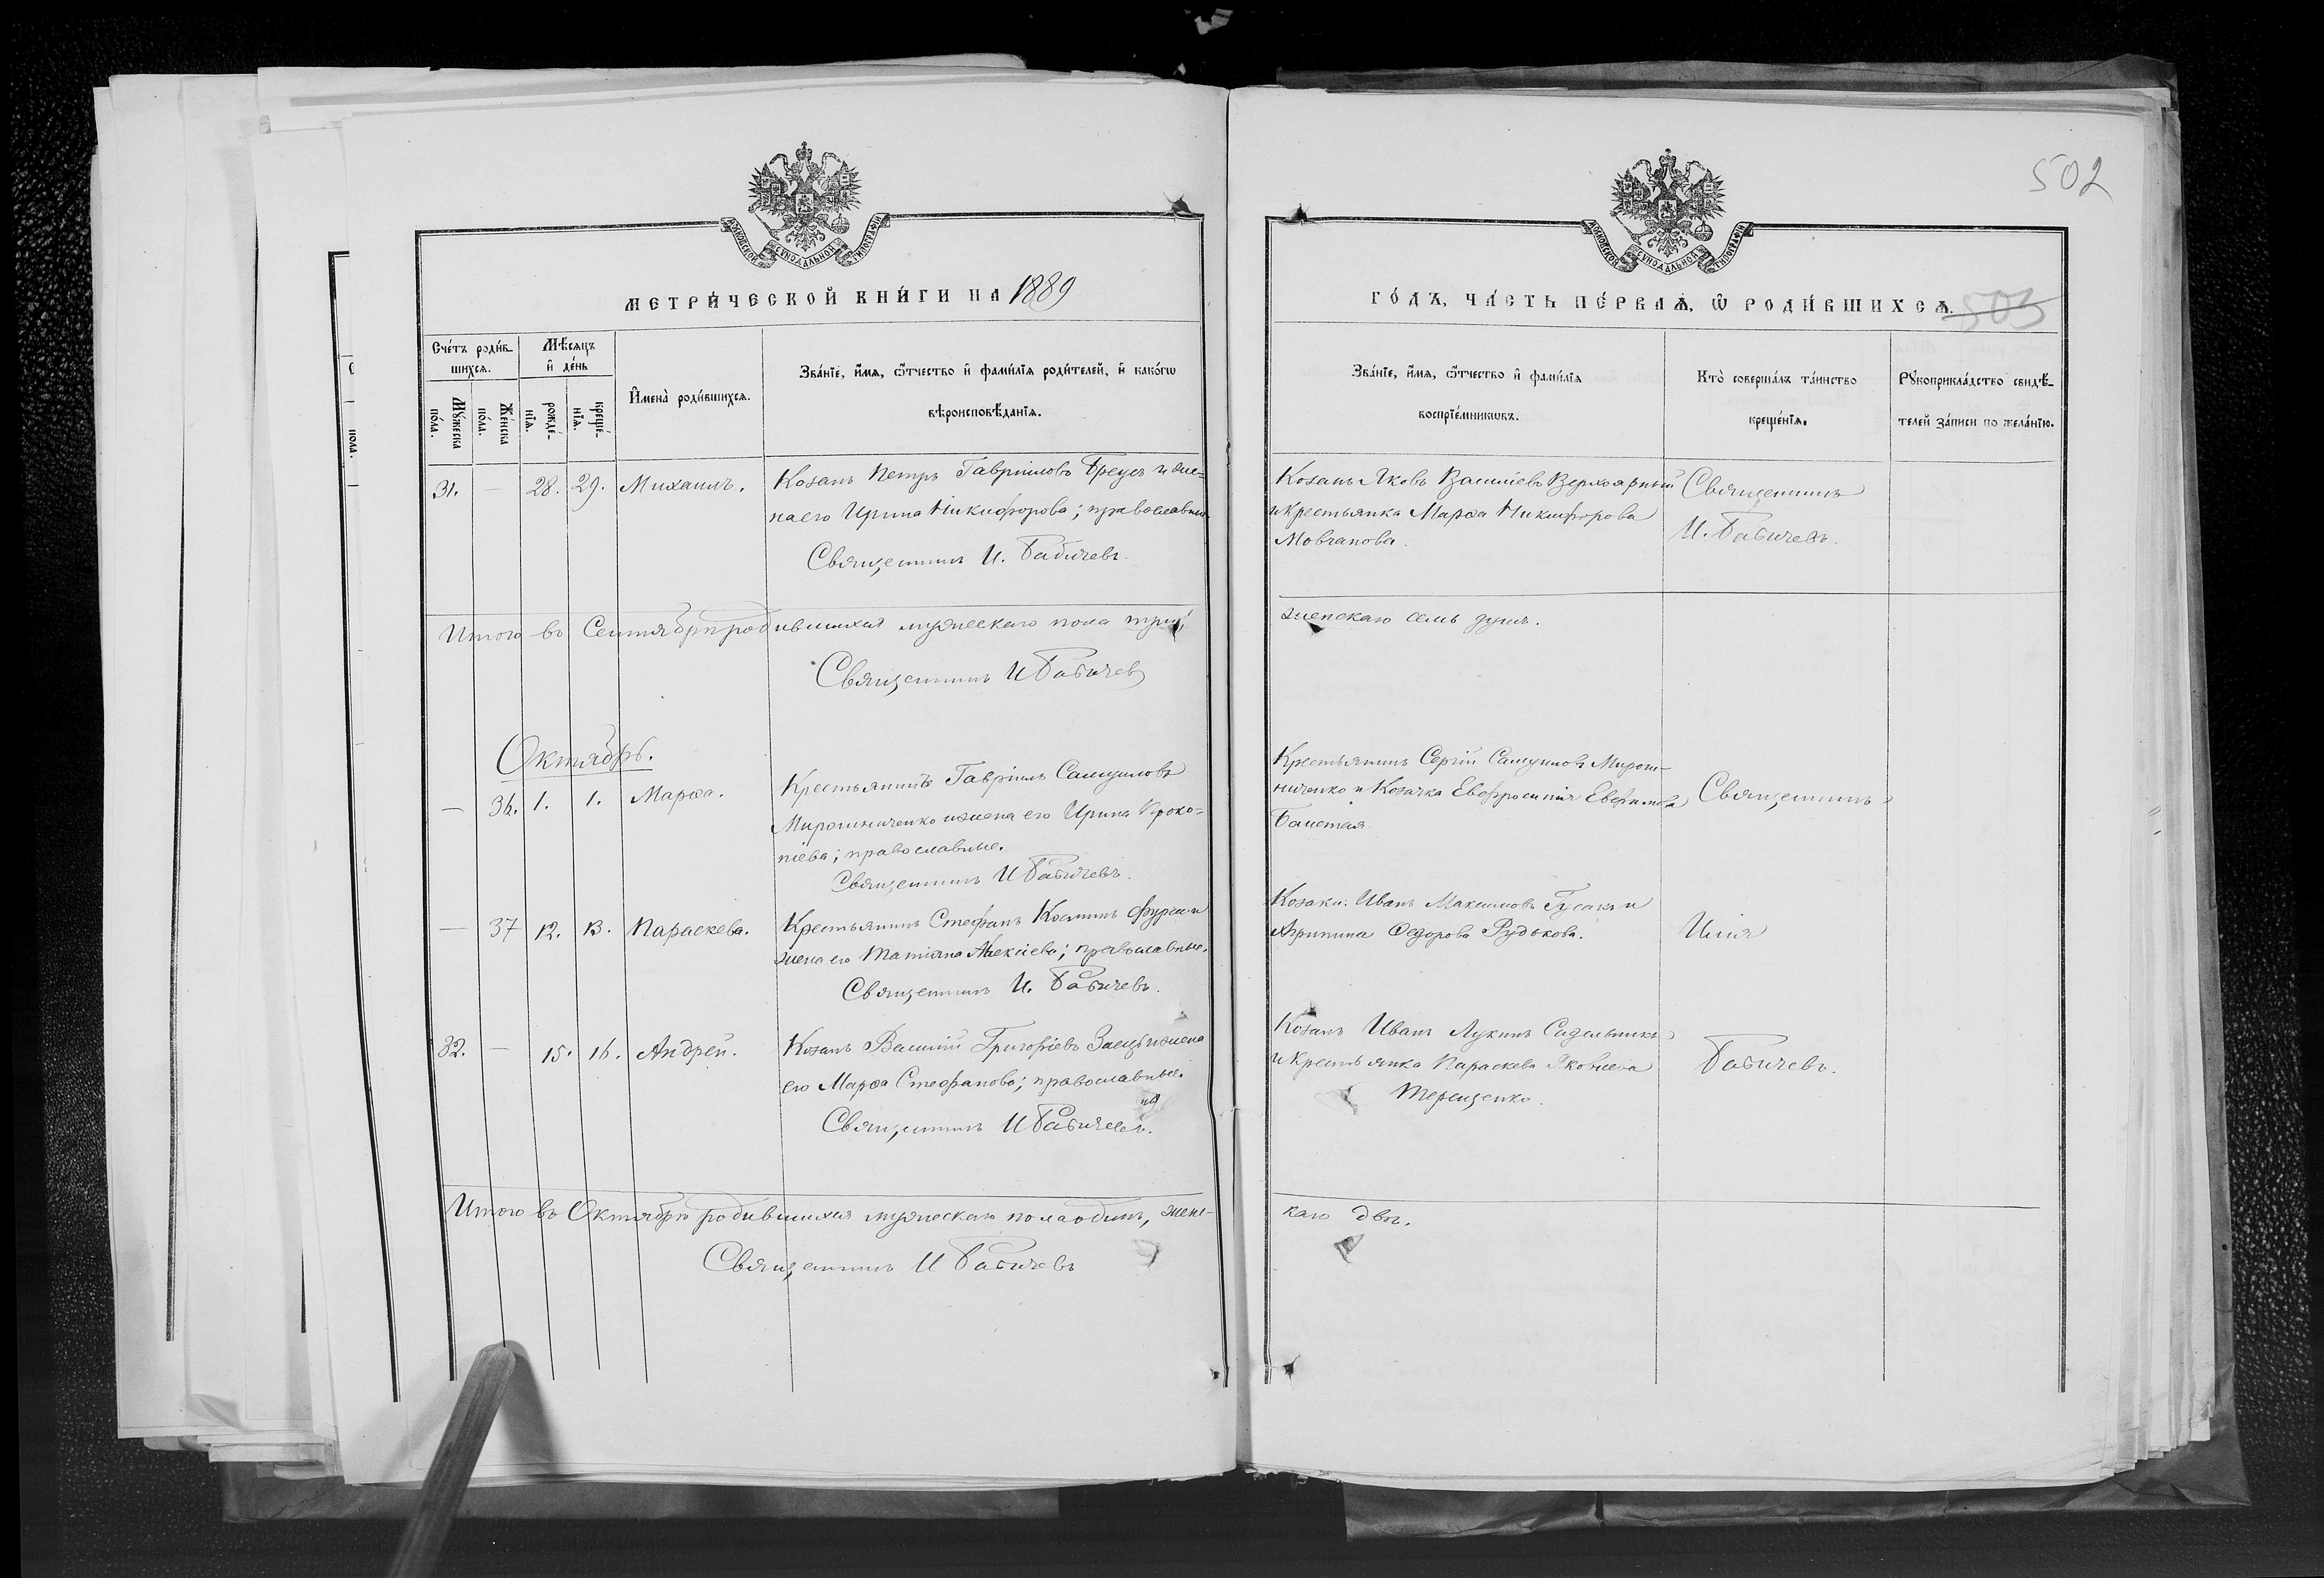 502
МОСКОВСКОЙ СУНОДАЛЬНОЙ ТИПОГРАФІИ
МОСКОВСКОЙ СУНОДАЛЬНОЙ ТИПОГРАФІИ
МЕТРИ́ЧЕСКОЙ КНИ́ГИ НА 1889
ГО́ДЪ, ЧА́СТЬ ПЕ́РВАѦ, Ѡ РОДИ́ВШИХСѦ.
503
Сче́тъ роди́в-
шихся.
Мѣ́сяцъ
и де́нь
Му́жеска
по́ла.
Же́нска
по́ла.
рожде́-
нія.
креще́-
нія.
Имена̀ роди́вшихся.
Зва́нїе, и́мя, ѻ́тчество и фами́лїя роди́телей, и како́гѡ
вѣроисповѣ́данїя.
Зва́нїе, и́мя, ѻ́тчество и фами́лїя
воспрїе́мникѡвъ.
Кто̀ соверша́лъ та́инство
креще́нїя.
Рꙋкоприкла́дство свидѣ́-
телей за́писи по жела́нїю.
31. — 28. 29. Михаилъ.
Козакъ Петръ Гавріиловъ Бреусъ и же-
на его Ирина Никифорова; православные.
Священникъ И. Бабичевъ.
Козакъ Яковъ Василіевъ
и Крестьянка Марѳа Никифорова
Мовчанова.
Священникъ
И. Бабичевъ.
Итого въ Сентябрѣ родившихся мужескаго пола три,
женскаго семь душъ.
Священникъ И Бабичев
Октябрь.
— 36. 1. 1. Марѳа.
Крестьянинъ Гавріилъ Самуиловъ
Мирошниченко и жена его Ирина Проко-
піева; православные.
Священникъ И Бабичевъ.
Крестьянинъ Сергій Самуиловъ Мирош-
ниченко и Козачка Евфросинія Евфимова
Священникъ
— 37 12. 13. Параскева.
Крестьянинъ Стефанъ Косминъ и
жена его Татіана Алексіева; православные.
Священникъ И. Бабичевъ.
Козаки: Иванъ Максимовъ Гусакъ и
Агрипина Ѳедорова Рудькова.
Илія
32. — 15. 16. Андрей.
Козакъ Василій Григоріевъ Заецъ и жена
его Марѳа Стефанова; православные.
Священникъ И Бабичевъ.
Козакъ Иванъ Лукинъ Сидельникъ
и Крестьянка Параскева Яковлева
Терещенко.
Бабичевъ.
Итого въ Октябрѣ родившихся мужескаго пола одинъ, женс-
каго двѣ.
Священникъ И Бабичевъ